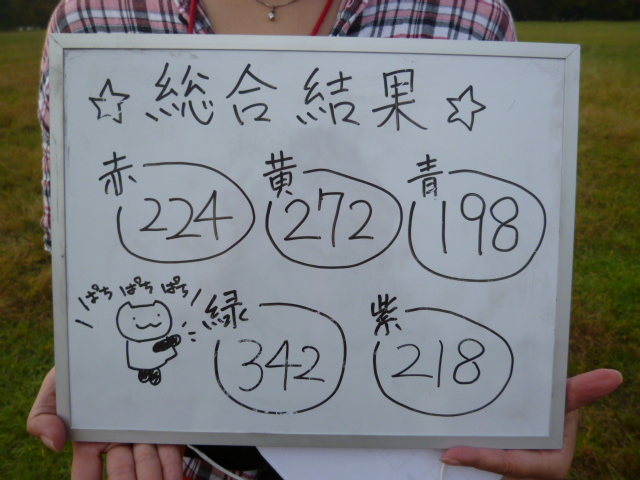 ☆総合結果☆
赤 黄 青
224 272 198
ぱちぱちぱち
緑 紫
342 218